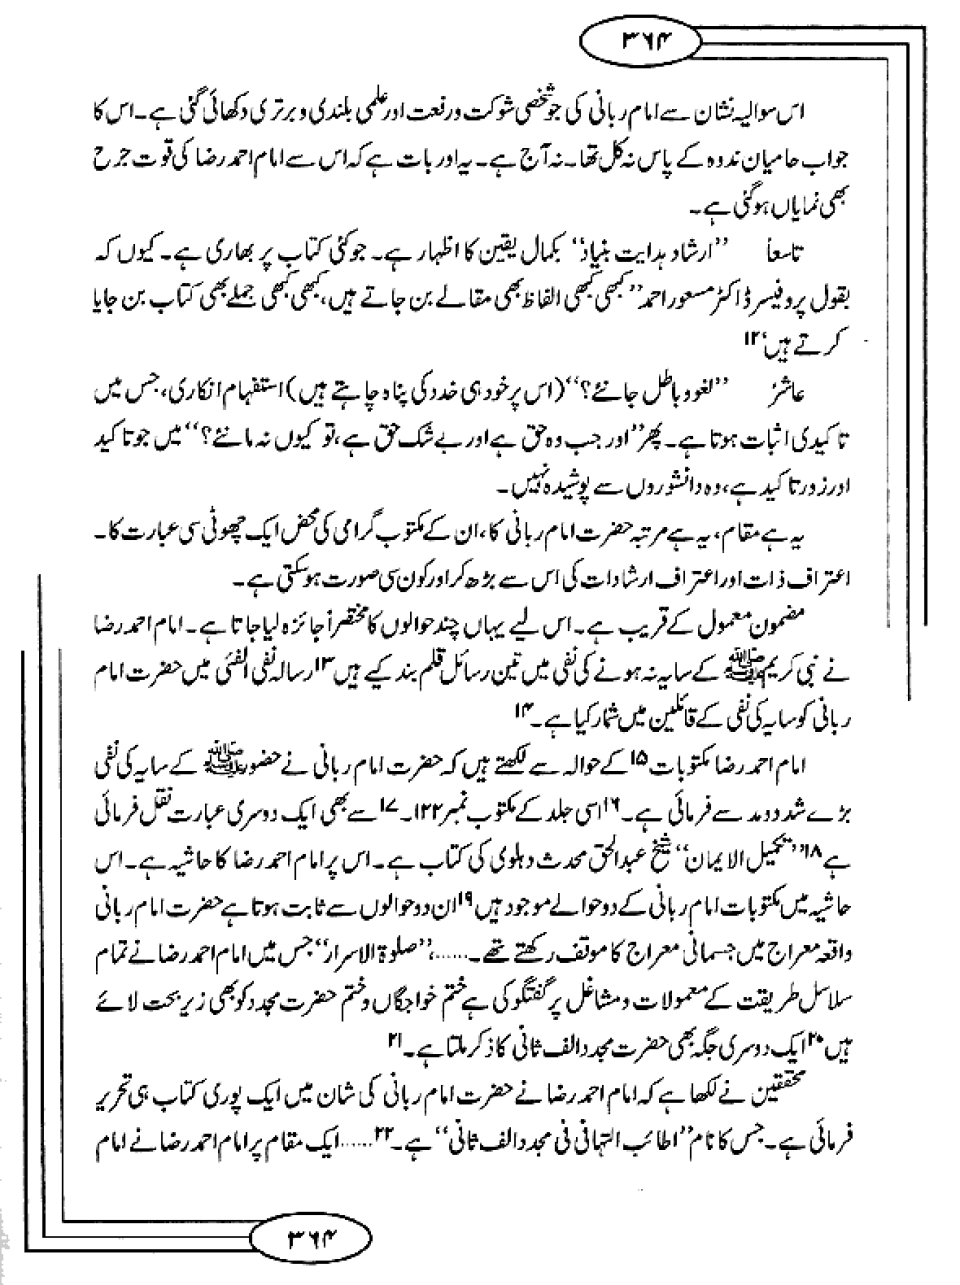 ۳۶۴
اس سوالیہ نشان سے امام ربانی کی جو شخصی شوکت ورفعت اور علمی بلندی و برتری دکھائی گئی ہے۔ اس کا
جواب حامیان ندوہ کے پاس نہ کل تھا۔ نہ آج ہے۔ یہ اور بات ہے کہ اس سے امام احمد رضا کی قوت جرح
بھی نمایاں ہوگئی ہے۔
تاسعاً ’’ارشاد ہدایت بنیاد‘‘ بکمال یقین کا اظہار ہے۔ جو کئی کتاب پر بھاری ہے۔ کیوں کہ
بقول پروفیسر ڈاکٹر مسعور احمد ’’کبھی کبھی الفاظ بھی مقالے بن جاتے ہیں، کبھی کبھی جملے بھی کتاب بن جایا
کرتے ہیں‘ ۱۲
عاشرً ’’لغو و باطل جانئے؟‘‘ (اس پر خود ہی خدد کی پناہ چاہتے ہیں) استفہام انکاری، جس میں
تاکیدی اثبات ہوتا ہے۔ پھر ’’اور جب وہ حق ہے اور بے شک حق ہے، تو کیوں نہ مانئے؟‘‘ میں جو تاکید
اور زور تاکید ہے، وہ دانشوروں سے پوشیدہ نہیں۔
یہ ہے مقام، یہ ہے مرتبہ حضرت امام ربانی کا، ان کے مکتوب گرامی کی محض ایک چھوٹی سی عبارت کا۔
اعتراف ذات اور اعتراف ارشادات کی اس سے بڑھ کر اور کون سی صورت ہوسکتی ہے۔
مضمون معمول کے قریب ہے۔ اس لیے یہاں چند حوالوں کا مختصراً جائزہ لیا جاتا ہے۔ امام احمد رضا
نے نبی کریم ﷺ کے سایہ نہ ہونے کی نفی میں تین رسائل قلم بند کیے ہیں ۱۳ رسالہ نفی الفئی میں حضرت امام
ربانی کو سایہ کی نفی کے قائلین میں شمار کیا ہے۔ ۱۴
امام احمد رضا مکتوبات ۱۵ کے حوالہ سے لکھتے ہیں کہ حضرت امام ربانی نے حضور ﷺ کے سایہ کی نفی
بڑے شد ومد سے فرمائی ہے۔ ۱۶ اسی جلد کے مکتوب نمبر ۱۲۲۔ ۱۷ سے بھی ایک دوسری عبارت نقل فرمائی
ہے ۱۸ ’’تکمیل الایمان‘‘ شیخ عبدالحق محدث دہلوی کی کتاب ہے۔ اس پر امام احمد رضا کا حاشیہ ہے۔ اس
حاشیہ میں مکتوبات امام ربانی کے دو حوالے موجود ہیں ۱۹ ان دو حوالوں سے ثابت ہوتا ہے حضرت امام ربانی
واقعہ معراج میں جسمانی معراج کا موقف رکھتے تھے۔......، ’’صلوۃ الاسرار‘‘ جس میں امام احمد رضا نے تمام
سلاسل طریقت کے معمولات ومشاغل پر گفتگو کی ہے ختم خواجگاں وختم حضرت مجدد کو بھی زیر بحث لائے
ہیں ۲۰ ایک دوسری جگہ بھی حضرت مجدد الف ثانی کا ذکر ملتا ہے۔ ۲۱
محققین نے لکھا ہے کہ امام احمد رضا نے حضرت امام ربانی کی شان میں ایک پوری کتاب ہی تحریر
فرمائی ہے۔ جس کا نام ’’اطائب التہانی فی مجدد الف ثانی‘‘ ہے۔ ۲۲...... ایک مقام پر امام احمد رضا نے امام
۳۶۴